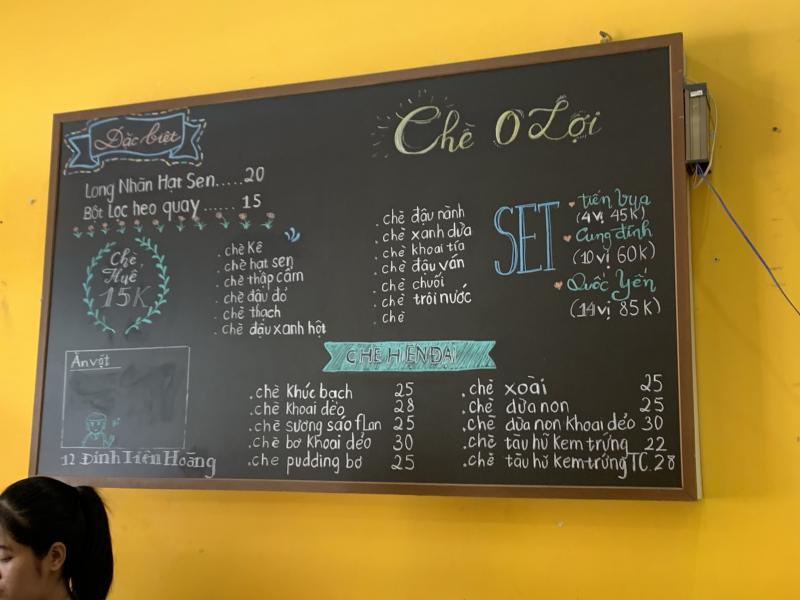 Chè O Lợi
Đặc biệt
Long Nhãn Hạt Sen.....20
Bột Lọc heo quay...... 15
Chè Huế
15K
. chè kê
. chè hạt sen
. chè thập cẩm
. chè đậu đỏ
. chè thạch
. chè đậu xanh hột
. chè đậu nành
. chè xanh dừa
. chè khoai tía
. chè đậu ván
. chè chuối
. chè trôi nước
. chè
SET
tiến bụa
(4 vị 45K)
Cung đình
(10 vị 60K)
Quốc Yến
(14 vị 85K)
CHÈ HIỆN ĐẠI
. chè khúc bạch 25
. chè khoai dẻo 28
. chè sương sáo flan 25
. chè bơ khoai dẻo 30
. chè pudding bơ 25
. chè xoài 25
. chè dừa non 25
. chè dừa non khoai dẻo 30
. chè tàu hủ kem trứng 22
. chè tàu hủ kem trứng TC. 28
Ăn vặt
12 Đinh Tiên Hoàng